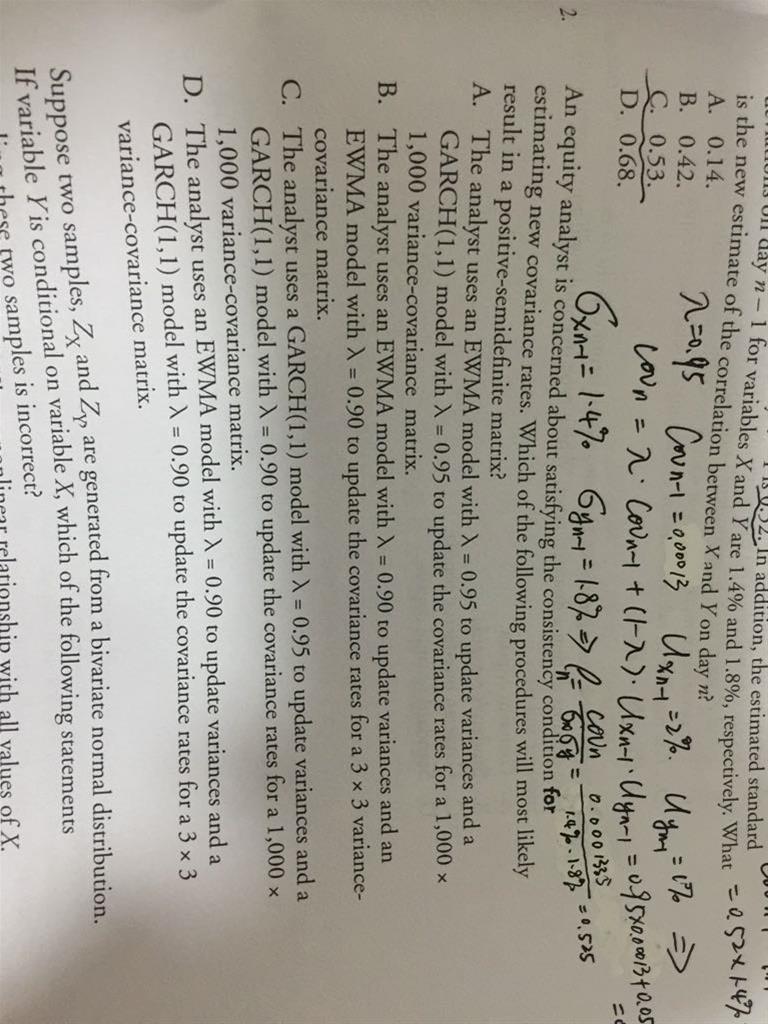 day n – 1 for variables X and Y are 1.4% and 1.8%, respectively. What = 0.52×1.4%
is 0.52. In addition, the estimated standard
is the new estimate of the correlation between X and Y on day n?
A. 0.14.
B. 0.42.
C. 0.53.
D. 0.68.
λ=0.95 Cov n-1 = 0.00013 Uxn-1 = 2%. Uyn-1 = 1% ⇒
Cov n = λ · Cov n-1 + (1-λ) · Uxn-1 · Uyn-1 = 0.95×0.00013+0.05
σxn-1 = 1.4% σyn-1 = 1.8% ⇒ ρn = cov n / σxσy = 0.0001335 / 1.4%·1.8% = 0.525
2. An equity analyst is concerned about satisfying the consistency condition for
estimating new covariance rates. Which of the following procedures will most likely
result in a positive-semidefinite matrix?
A. The analyst uses an EWMA model with λ = 0.95 to update variances and a
GARCH(1,1) model with λ = 0.95 to update the covariance rates for a 1,000 ×
1,000 variance-covariance matrix.
B. The analyst uses an EWMA model with λ = 0.90 to update variances and an
EWMA model with λ = 0.90 to update the covariance rates for a 3 × 3 variance-
covariance matrix.
C. The analyst uses a GARCH(1,1) model with λ = 0.95 to update variances and a
GARCH(1,1) model with λ = 0.90 to update the covariance rates for a 1,000 ×
1,000 variance-covariance matrix.
D. The analyst uses an EWMA model with λ = 0.90 to update variances and a
GARCH(1,1) model with λ = 0.90 to update the covariance rates for a 3 × 3
variance-covariance matrix.
Suppose two samples, ZX and ZY, are generated from a bivariate normal distribution.
If variable Y is conditional on variable X, which of the following statements
these two samples is incorrect?
relationship with all values of X.